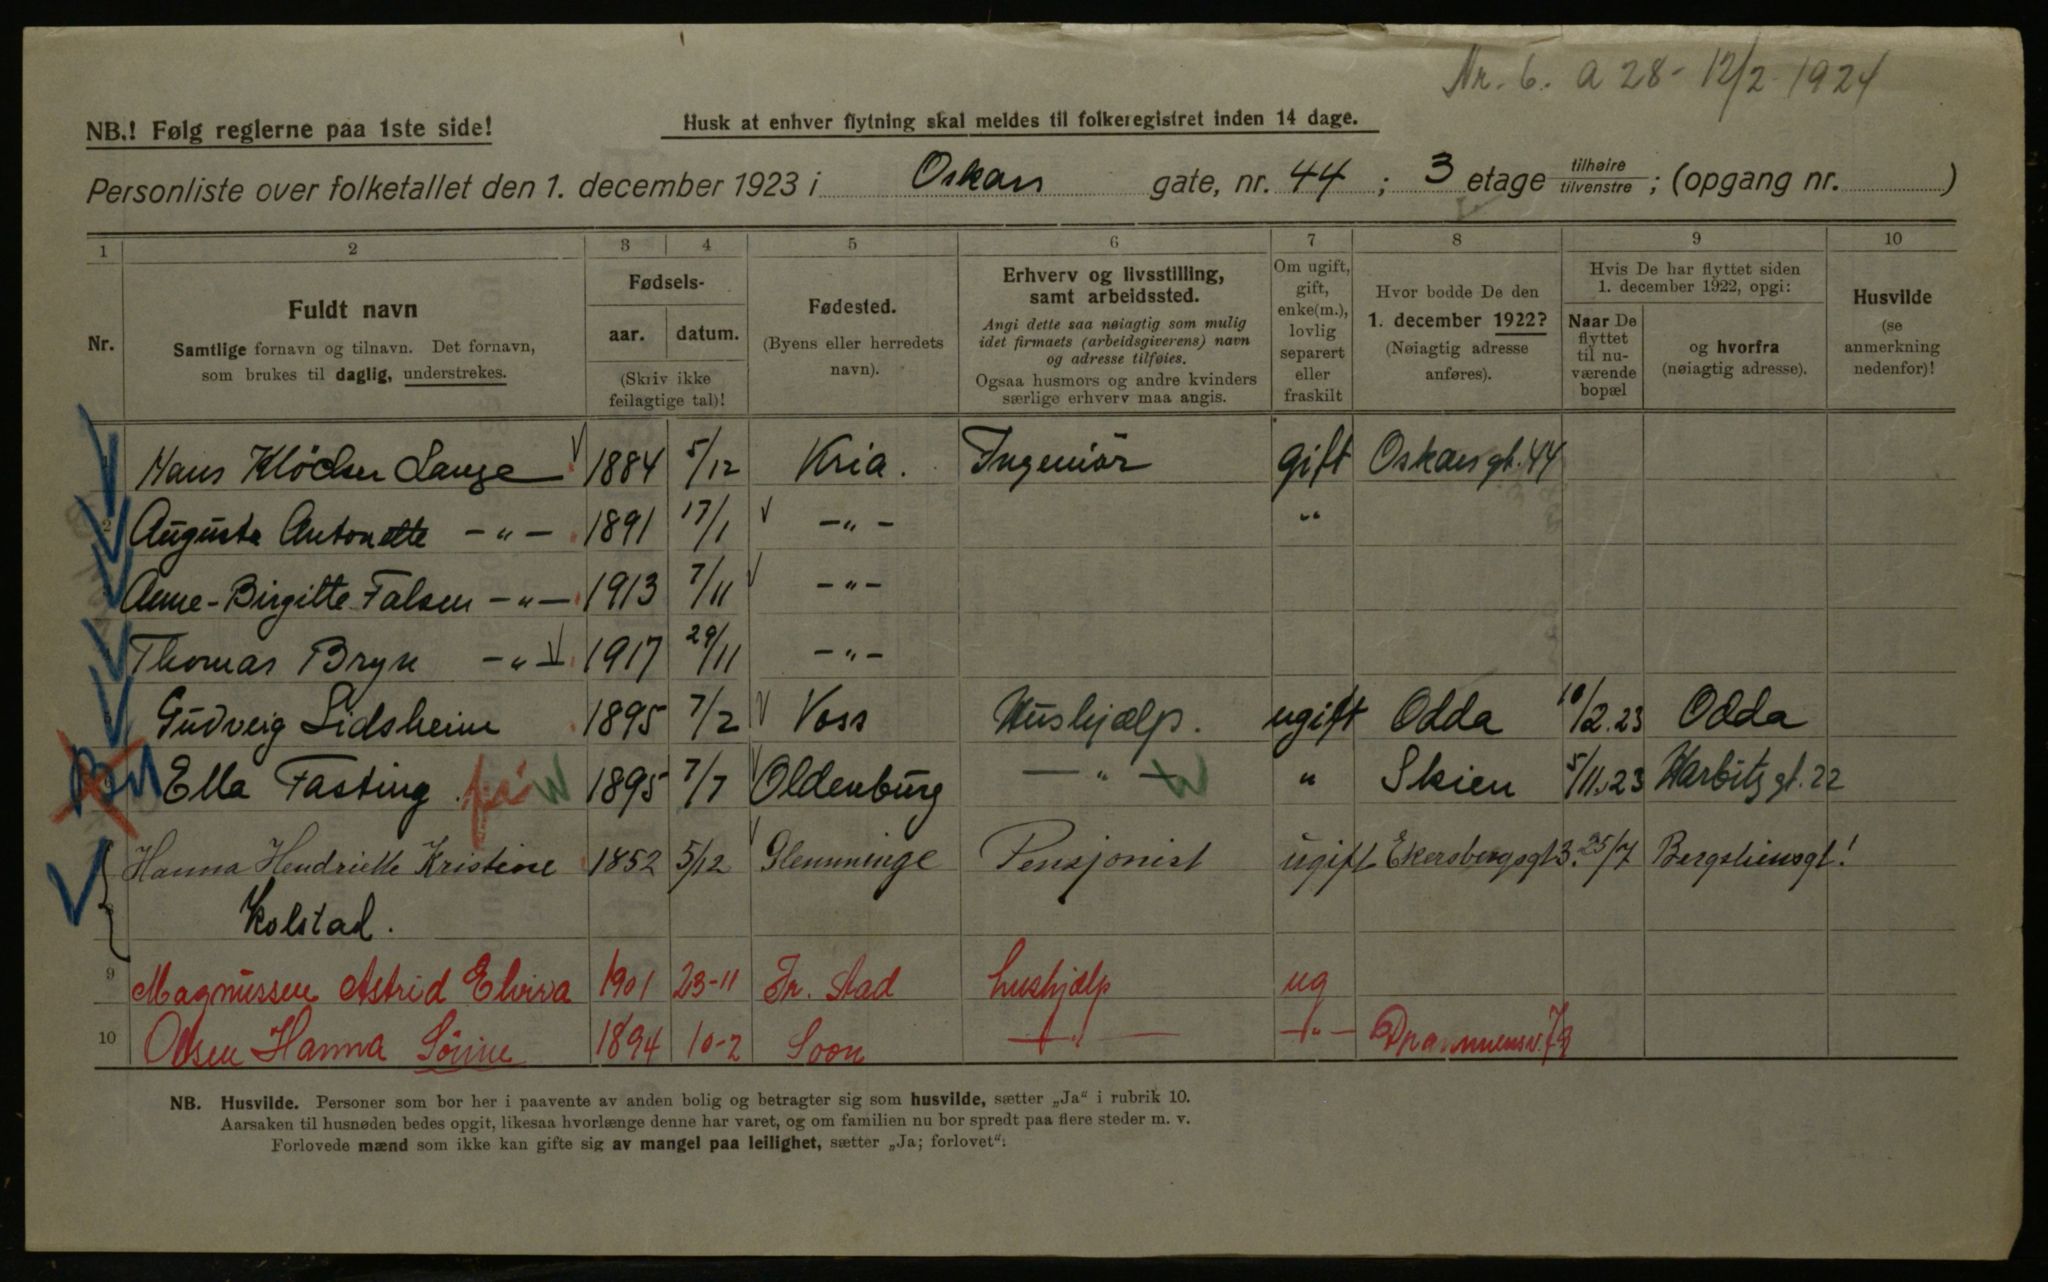 Nr. 6. a 28 - 12/2 - 1924
NB.! Følg reglerne paa 1ste side!
Husk at enhver flytning skal meldes til folkeregistret inden 14 dage.
Personliste over folketallet den 1. december 1923 i Oskars gate, nr. 44 ; 3 etage tilhøire tilvenstre ; (opgang nr. )
1 2 3 4 5 6 7 8 9 10
Nr.
Fuldt navn
Samtlige fornavn og tilnavn. Det fornavn,
som brukes til daglig, understrekes.
Fødsels-
aar. datum.
(Skriv ikke
feilagtige tal)!
Fødested.
(Byens eller herredets
navn).
Erhverv og livsstilling,
samt arbeidssted.
Angi dette saa nøiagtig som mulig
idet firmaets (arbeidsgiverens) navn
og adresse tilføies.
Ogsaa husmors og andre kvinders
særlige erhverv maa angis.
Om ugift,
gift,
enke(m.),
lovlig
separert
eller
fraskilt
Hvor bodde De den
1. december 1922?
(Nøiagtig adresse
anføres).
Hvis De har flyttet siden
1. december 1922, opgi:
Naar De
flyttet
til nu-
værende
bopæl
og hvorfra
(nøiagtig adresse).
Husvilde
(se
anmerkning
nedenfor)!
Hans Klöcker Lange 1884 5/12 Kria. Ingeniör gift Oskarsgt. 44
Auguste Antonette -"- 1891 17/1 -"- "
Anne-Birgitte Falsen -"- 1913 7/11 -"-
Thomas Bryn -"- 1917 29/11 -"-
Gudveig Lidsheim 1895 7/2 Voss Hushjælp. ugift Odda 10/2.23 Odda
Ella Fasting 1895 7/7 Oldenburg -"- " Skien 5/11.23 Harbitz gt. 22
Hanna Hendriette Kristine 1852 5/12 Glemminge Pensjonist ugift Ekersbergsgt 3. 25/7 Bergsliensgt!
Kolstad.
9 Magnussen Astrid Elvira 1901 23-11 Fr. Stad hushjælp ug
10 Olsen Hanna Sörine 1894 10-2 Soon -"- -"- Drammensv. 79
NB. Husvilde. Personer som bor her i paavente av anden bolig og betragter sig som husvilde, sætter „Ja“ i rubrik 10.
Aarsaken til husnøden bedes opgit, likesaa hvorlænge denne har varet, og om familien nu bor spredt paa flere steder m. v.
Forlovede mænd som ikke kan gifte sig av mangel paa leilighet, sætter „Ja; forlovet“.